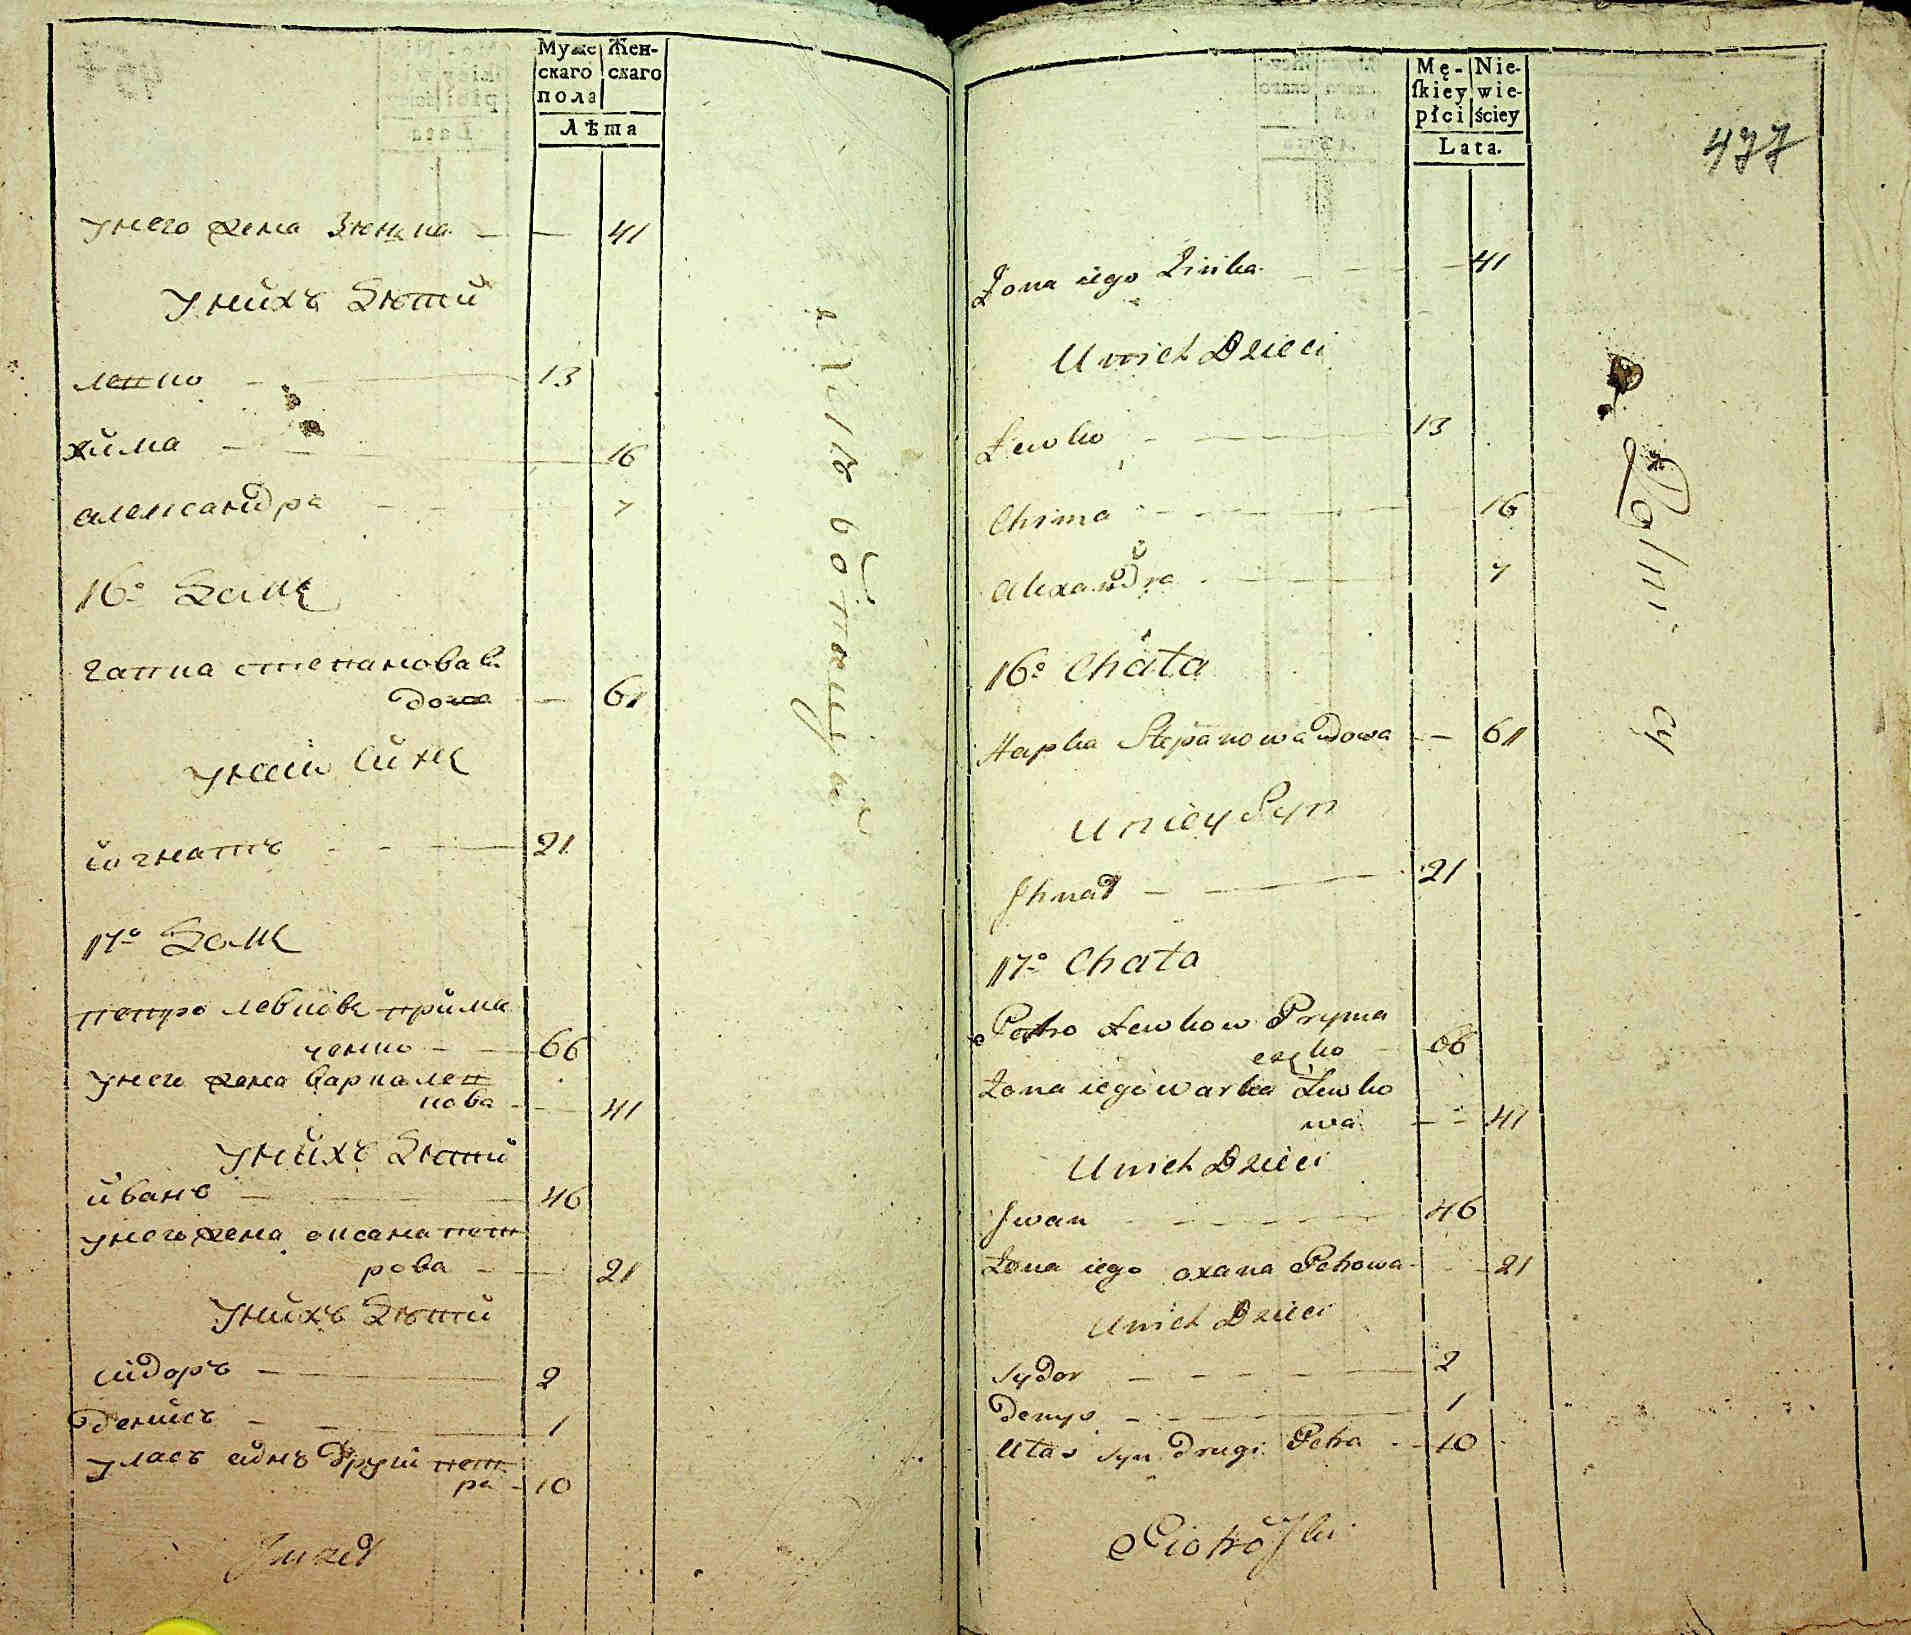 Мужескаго пола
Женскаго
Лѣта
унего жена Зѣнка — — 41
унихъ Дѣти
левко — 13
хима — 16
александра — 7
16о Дамъ
гапка степановав
дова — 61
унеи Синъ
игнатъ — 21
17о Дамъ
петро левковъ прима
ченко — 66
унего жена варка лев
кова — 41
унихъ Дѣти
иванъ — 46
унего жена оксана пет
рова — 21
унихъ Дѣти
сидоръ — 2
денисъ — 1
уласъ синъ Другий пет
ра — 10
Mę-
skiey
płci
Nie-
wie-
ściey
Lata.
477
Zona iego Zinka — 41
Unich Dzieci
Lewko — 13
Chima — 16
Alexandra — 7
16o Chata
Hapka Stepanowa wdowa — 61
Uniey Syn
Ihnat — 21
17o Chata
Petro Lewkow Pryma
czenko — 66
Zona iego warka Lewko
wa — 41
Unich Dzieci
Iwan — 46
Zona iego oxana Petrowa — 21
Unich Dzieci
Sydor — 2
Denys — 1
Ułas syn drugi Petra — 10